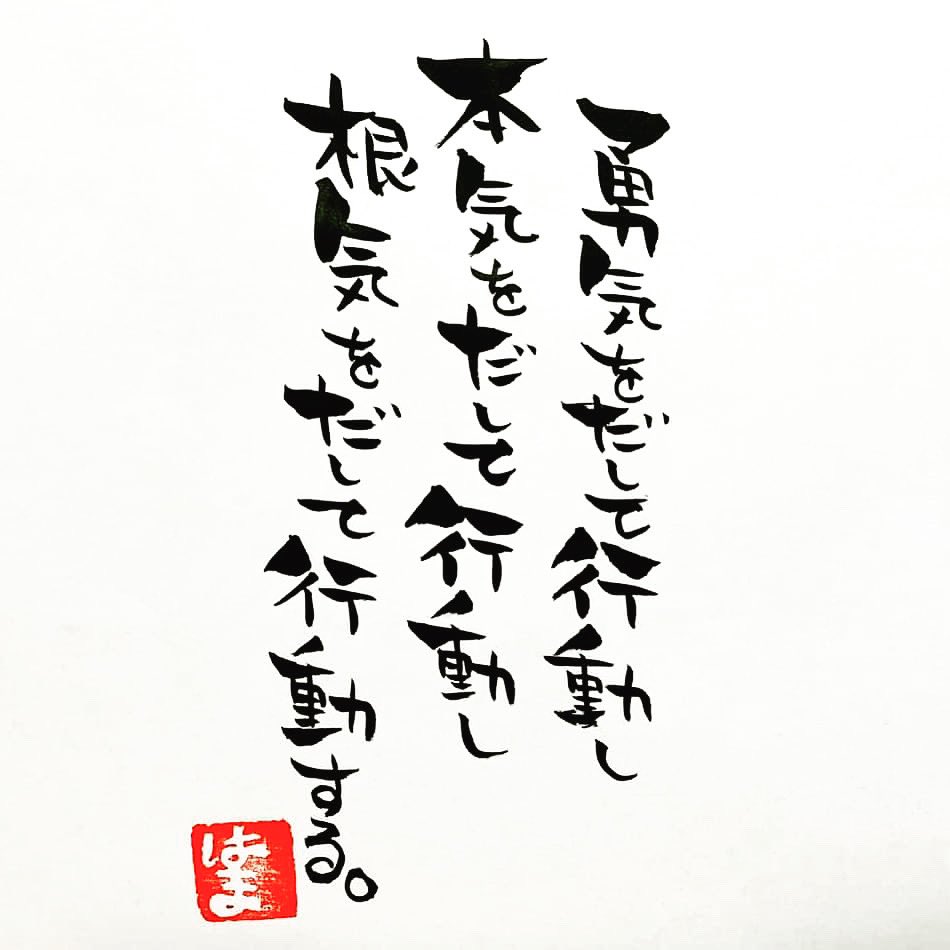 勇気をだして行動し
本気をだして行動し
根気をだして行動する。
はま